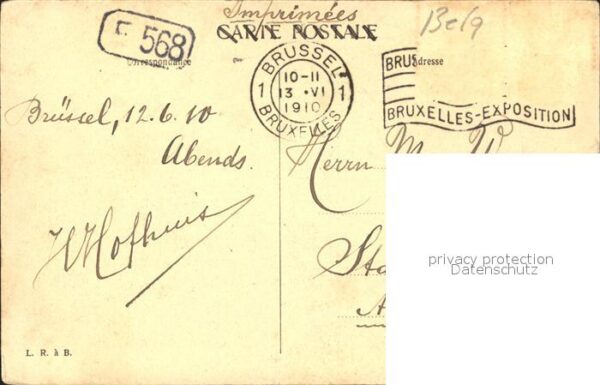 Imprimées
Belg
F 568
CARTE POSTALE
Correspondance
Adresse
BRUSSEL
10-11
1 13 ·VI 1
1910
BRUXELLES
BRUXELLES-EXPOSITION
Brüssel, 12.6.10
Abends.
Herrn
privacy protection
Datenschutz
L. R. à B.